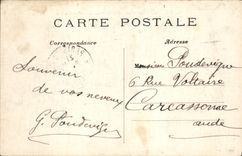 CARTE POSTALE
Correspondance
Adresse
Souvenir
de vos neveux
G. Poudevigne
Monsieur Poudevigne
6 Rue Voltaire
Carcassonne
aude